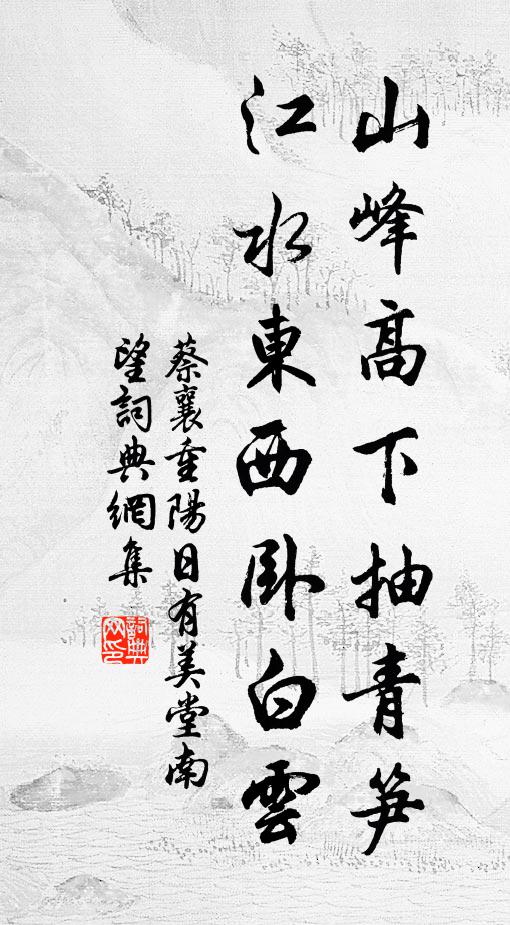 山峰高下抽青笋
江水東西卧白雲
蔡襄重陽日有美堂南
望詞典網集
詞典網印